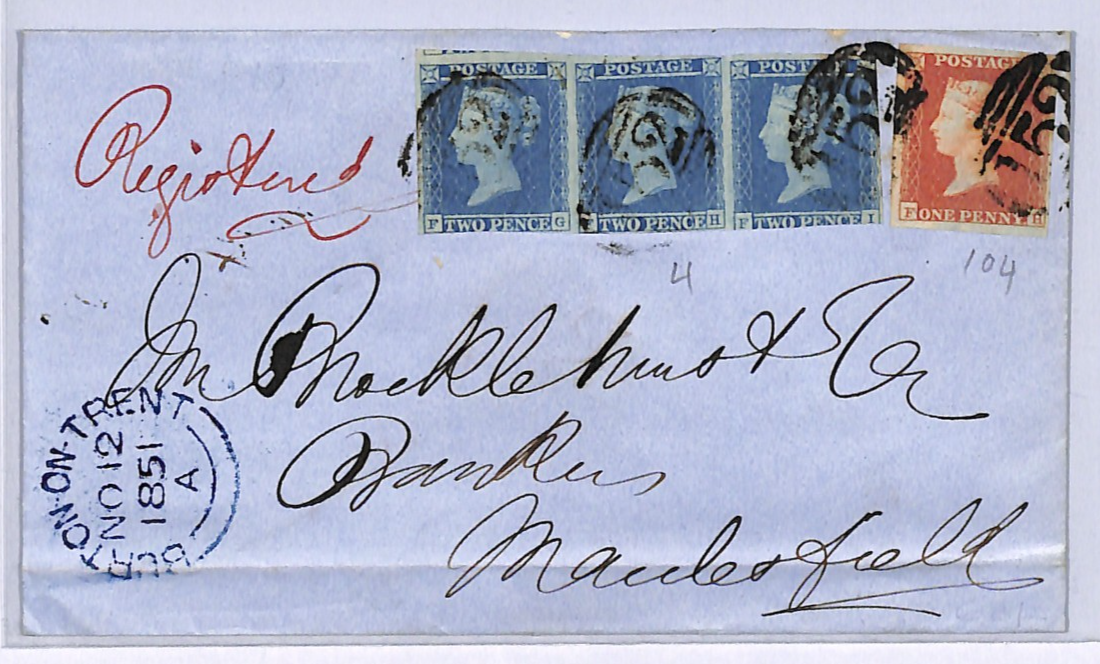 Registered
POSTAGE POSTAGE POSTAGE POSTAGE
F TWO PENCE G TWO PENCE H F TWO PENCE I F ONE PENNY H
4 104
Brocklehurst & Co
Bankers
Macclesfield
BURTON-ON-TRENT
NO 12
1851
A